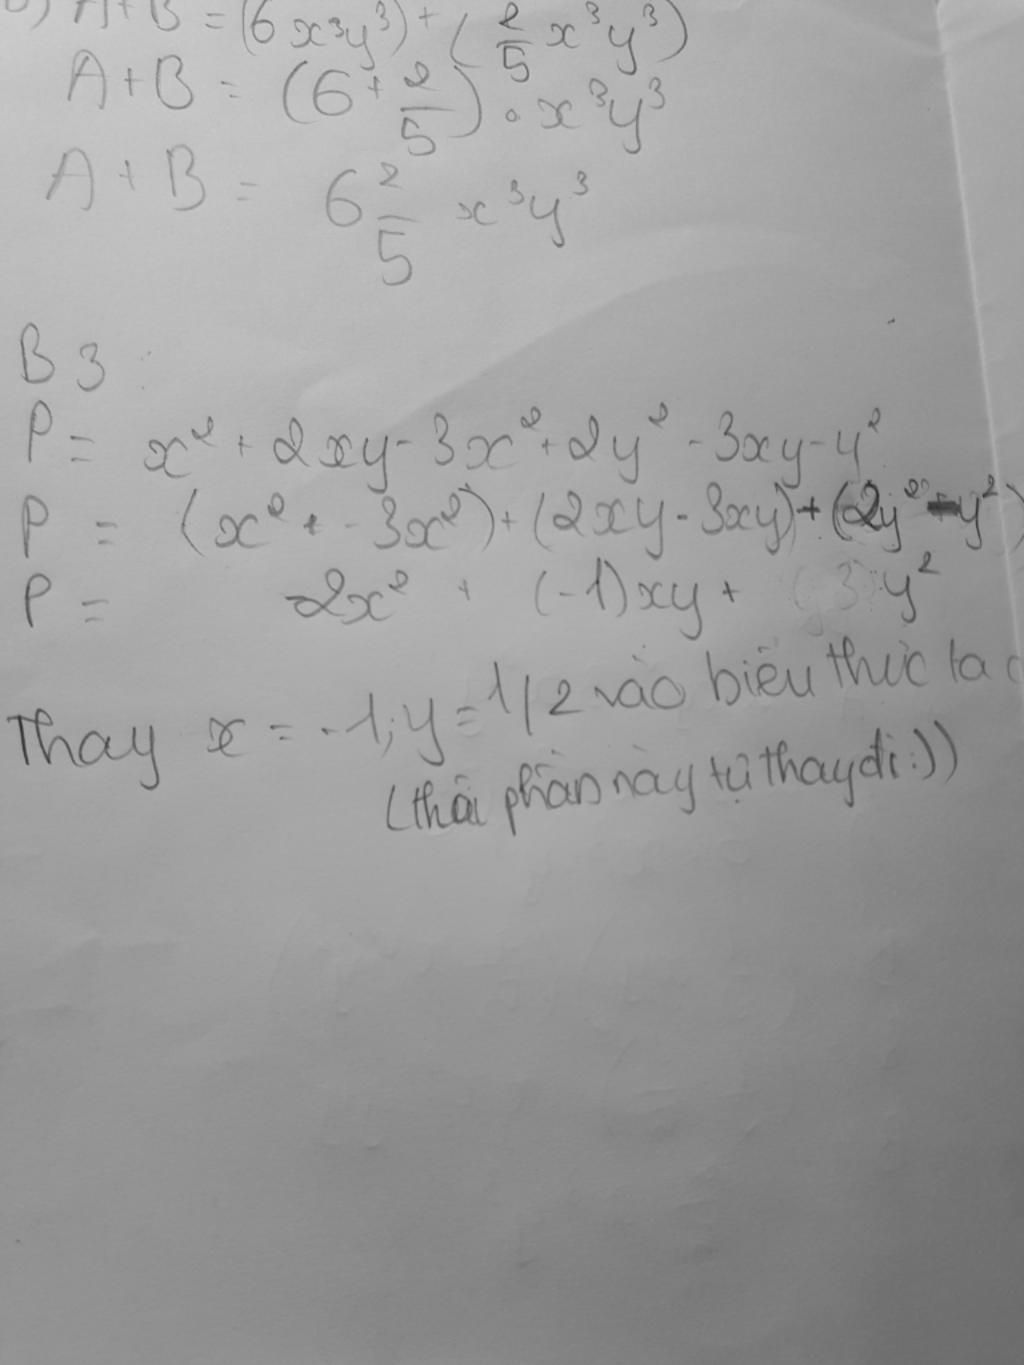 A+B = (6x³y³) + (2/5 x³y³)
A+B = (6 + 2/5) . x³y³
A + B = 6 2/5 x³y³
B3:
P = x² + 2xy - 3x² + 2y² - 3xy - y²
P = (x² + - 3x²) + (2xy - 3xy) + (2y² - y²)
P = -2x² + (-1)xy + y²
Thay x = -1; y = 1/2 vào biểu thức ta
(thôi phần này tự thay đi :))